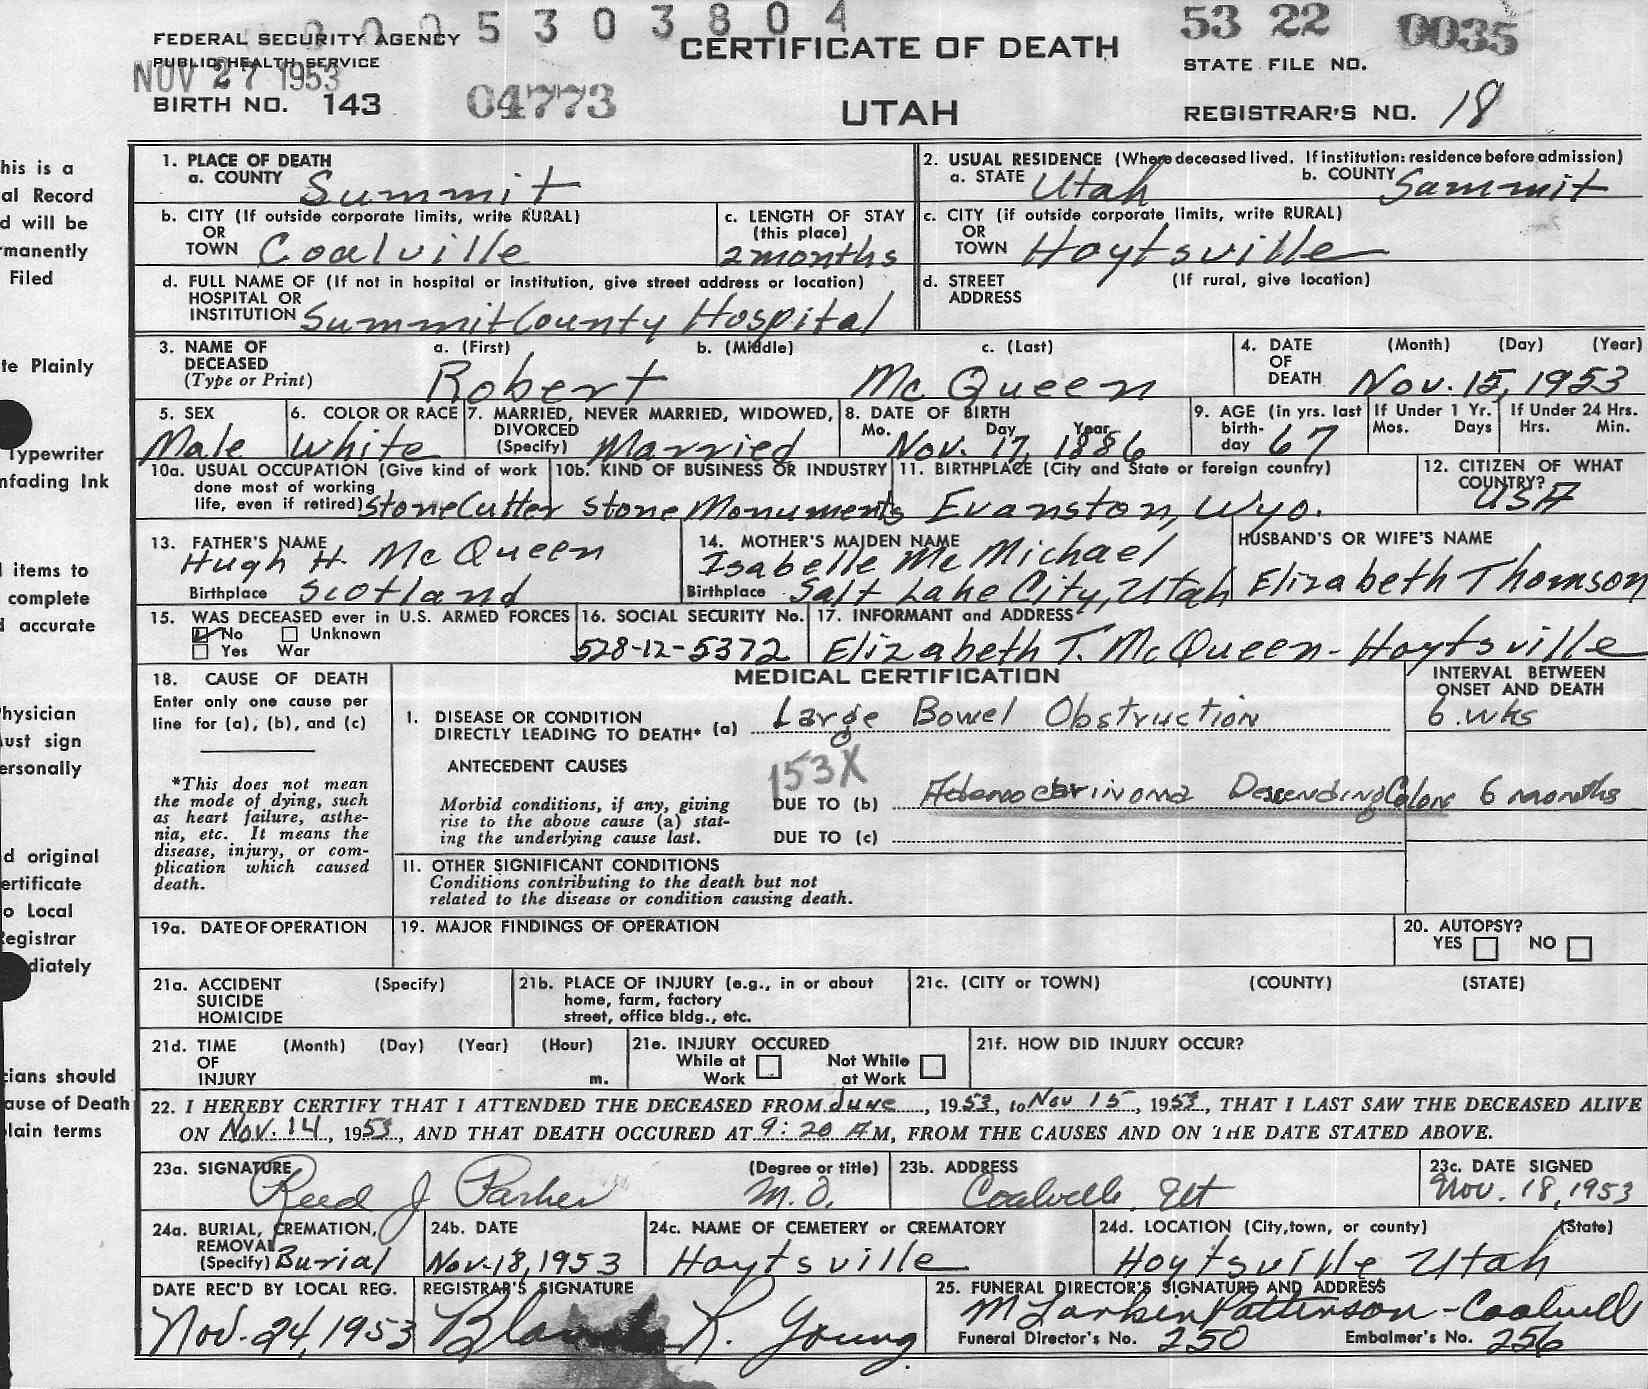 3005303804
53 22 0035
FEDERAL SECURITY AGENCY
CERTIFICATE OF DEATH
STATE FILE NO.
PUBLIC HEALTH SERVICE
NOV 27 1953
BIRTH NO. 143
04773
UTAH
REGISTRAR'S NO. 18
1. PLACE OF DEATH
a. COUNTY Summit
2. USUAL RESIDENCE (Where deceased lived. If institution: residence before admission)
a. STATE Utah b. COUNTY Summit
b. CITY (If outside corporate limits, write RURAL)
OR
TOWN Coalville
c. LENGTH OF STAY
(this place)
2 months
c. CITY (if outside corporate limits, write RURAL)
OR
TOWN Hoytsville
d. FULL NAME OF (If not in hospital or institution, give street address or location)
HOSPITAL OR
INSTITUTION Summit County Hospital
d. STREET (If rural, give location)
ADDRESS
3. NAME OF DECEASED
(Type or Print)
a. (First) b. (Middle) c. (Last)
Robert McQueen
4. DATE OF DEATH
(Month) (Day) (Year)
Nov. 15, 1953
5. SEX
Male
6. COLOR OR RACE
White
7. MARRIED, NEVER MARRIED, WIDOWED,
DIVORCED
(Specify) Married
8. DATE OF BIRTH
Mo. Day Year
Nov. 17, 1886
9. AGE (in yrs. last
birth-
day 67
If Under 1 Yr.
Mos. Days
If Under 24 Hrs.
Hrs. Min.
10a. USUAL OCCUPATION (Give kind of work
done most of working
life, even if retired) Stone Cutter
10b. KIND OF BUSINESS OR INDUSTRY
Stone Monuments
11. BIRTHPLACE (City and State or foreign country)
Evanston, Wyo.
12. CITIZEN OF WHAT
COUNTRY?
USA
13. FATHER'S NAME
Hugh H. McQueen
Birthplace Scotland
14. MOTHER'S MAIDEN NAME
Isabelle McMichael
Birthplace Salt Lake City, Utah
HUSBAND'S OR WIFE'S NAME
Elizabeth Thomson
15. WAS DECEASED ever in U.S. ARMED FORCES
No Unknown
Yes War
16. SOCIAL SECURITY No.
528-12-5372
17. INFORMANT and ADDRESS
Elizabeth T. McQueen - Hoytsville
18. CAUSE OF DEATH
Enter only one cause per
line for (a), (b), and (c)
*This does not mean
the mode of dying, such
as heart failure, asthe-
nia, etc. It means the
disease, injury, or com-
plication which caused
death.
MEDICAL CERTIFICATION
INTERVAL BETWEEN
ONSET AND DEATH
I. DISEASE OR CONDITION
DIRECTLY LEADING TO DEATH* (a) Large Bowel Obstruction 6 wks
ANTECEDENT CAUSES
153X
Morbid conditions, if any, giving
rise to the above cause (a) stat-
ing the underlying cause last.
DUE TO (b) Adenocarinoma Descending Colon 6 months
DUE TO (c)
II. OTHER SIGNIFICANT CONDITIONS
Conditions contributing to the death but not
related to the disease or condition causing death.
19a. DATE OF OPERATION
19. MAJOR FINDINGS OF OPERATION
20. AUTOPSY?
YES NO
21a. ACCIDENT (Specify)
SUICIDE
HOMICIDE
21b. PLACE OF INJURY (e.g., in or about
home, farm, factory
street, office bldg., etc.
21c. (CITY or TOWN) (COUNTY) (STATE)
21d. TIME (Month) (Day) (Year) (Hour)
OF
INJURY m.
21e. INJURY OCCURED
While at Work Not While at Work
21f. HOW DID INJURY OCCUR?
22. I HEREBY CERTIFY THAT I ATTENDED THE DECEASED FROM June, 1953, to Nov 15, 1953, THAT I LAST SAW THE DECEASED ALIVE
ON Nov. 14, 1953, AND THAT DEATH OCCURED AT 9:20 AM, FROM THE CAUSES AND ON THE DATE STATED ABOVE.
23a. SIGNATURE (Degree or title)
Reed J Parker M.D.
23b. ADDRESS
Coalville, Ut
23c. DATE SIGNED
Nov. 18, 1953
24a. BURIAL, CREMATION,
REMOVAL
(Specify) Burial
24b. DATE
Nov. 18, 1953
24c. NAME OF CEMETERY or CREMATORY
Hoytsville
24d. LOCATION (City, town, or county) (State)
Hoytsville Utah
DATE REC'D BY LOCAL REG.
Nov. 24, 1953
REGISTRAR'S SIGNATURE
R. Young
25. FUNERAL DIRECTOR'S SIGNATURE AND ADDRESS
M Larken Pattinson - Coalvill
Funeral Director's No. 250 Embalmer's No. 256
his is a
al Record
d will be
rmanently
Filed
te Plainly
Typewriter
nfading Ink
l items to
complete
d accurate
hysician
ust sign
ersonally
d original
ertificate
o Local
Registrar
diately
cians should
ause of Death
lain terms